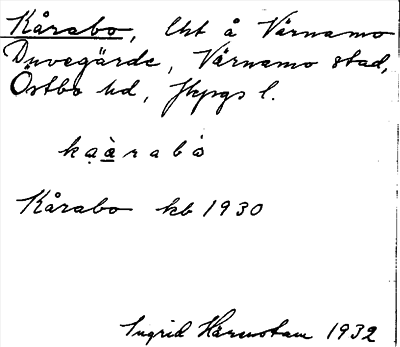 Kårabo, lht å Värnamo
Duvegärde, Värnamo stad,
Östbo hd, Jkpgs l.
kạàrabͦo
Kårabo kb 1930
Ingrid Härnstam 1932